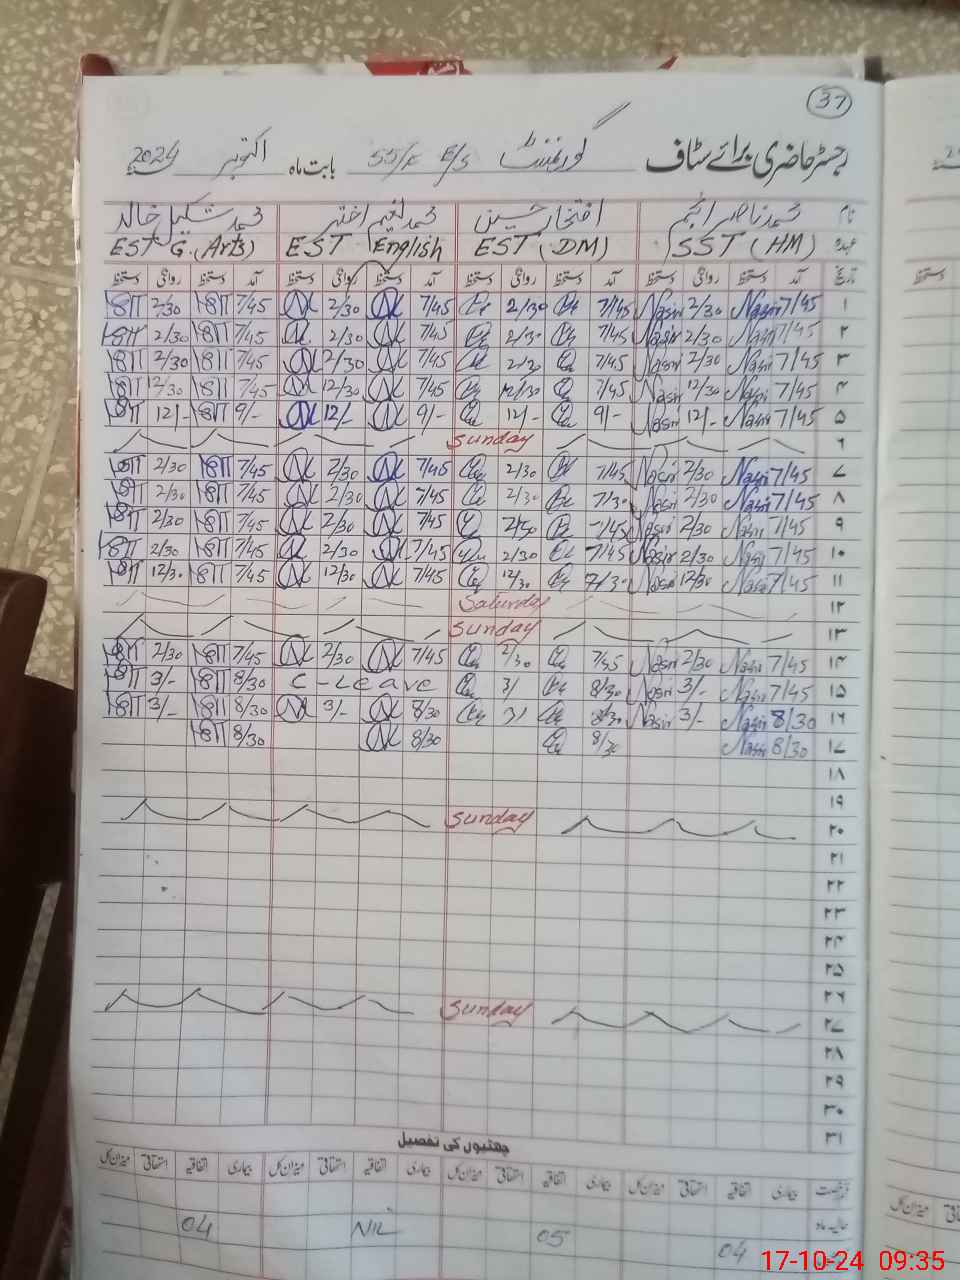 37
رجسٹر حاضری برائے سٹاف گورنمنٹ E/S 55/F بابت ماہ اکتوبر 2024
نام محمد ناصر انجم افتخار حسین محمد نعیم اختر محمد شکیل خالد
عہدہ SST (HM) EST (DM) EST English EST G. (Arts)
تاریخ آمد دستخط روانگی دستخط آمد دستخط روانگی دستخط آمد دستخط روانگی دستخط آمد دستخط روانگی دستخط
۱ 7/45 Nasir 2/30 Nasir 7/45 2/30 7/45 2/30 7/45 2/30
۲ 7/45 Nasir 2/30 Nasir 7/45 2/30 7/45 2/30 7/45 2/30
۳ 7/45 Nasir 2/30 Nasir 7/45 2/30 7/45 2/30 7/45 2/30
۴ 7/45 Nasir 12/30 Nasir 7/45 12/30 7/45 12/30 7/45 12/30
۵ 7/45 Nasir 12/- Nasir 9/- 12/- 9/- 12/- 9/- 12/-
۶ Sunday
۷ 7/45 Nasir 2/30 Nasir 7/45 2/30 7/45 2/30 7/45 2/30
۸ 7/45 Nasir 2/30 Nasir 7/30 2/30 7/45 2/30 7/45 2/30
۹ 7/45 Nasir 2/30 Nasir 7/45 2/30 7/45 2/30 7/45 2/30
۱۰ 7/45 Nasir 2/30 Nasir 7/45 2/30 7/45 2/30 7/45 2/30
۱۱ 7/45 Nasir 12/30 Nasir 7/30 12/30 7/45 12/30 7/45 12/30
۱۲ Saturday
۱۳ Sunday
۱۴ 7/45 Nasir 2/30 Nasir 7/45 2/30 7/45 2/30 7/45 2/30
۱۵ 7/45 Nasir 3/- Nasir 8/30 3/ C-Leave 8/30 3/-
۱۶ 8/30 Nasir 3/- Nasir 8/30 3/ 8/30 3/- 8/30 3/-
۱۷ 8/30 Nasir 8/30 8/30 8/30
۱۸
۱۹
۲۰ Sunday
۲۱
۲۲
۲۳
۲۴
۲۵
۲۶
۲۷ Sunday
۲۸
۲۹
۳۰
۳۱
چھٹیوں کی تفصیل
رخصت بیماری اتفاقیہ استحقاقی میزان کل بیماری اتفاقیہ استحقاقی میزان کل بیماری اتفاقیہ استحقاقی میزان کل بیماری اتفاقیہ استحقاقی میزان کل
حالیہ ماہ 04 05 NIL 04
17-10-24 09:35